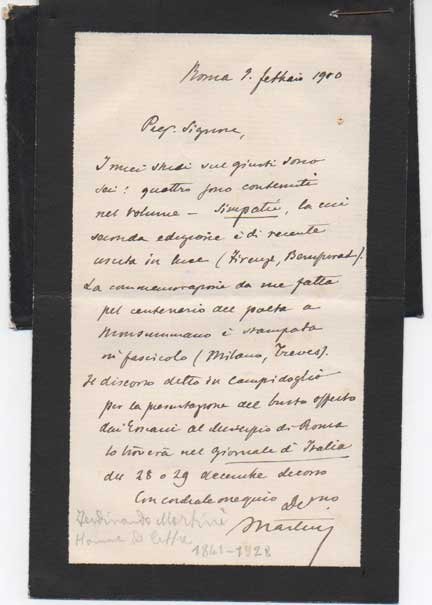 Roma 9. febbraio 1910
Preg. Signore,
I miei studi sul Giusti sono
sei: quattro sono contenuti
nel volume – Simpatie, la cui
seconda edizione è di recente
uscita in luce (Firenze, Bemporad).
La commemorazione da me fatta
pel centenario del poeta a
Monsummano è stampata
in fascicolo (Milano, Treves).
Il discorso detto in Campidoglio
per la presentazione del busto offerto
dai Toscani al Municipio di Roma
lo troverà nel giornale d'Italia
del 28 o 29 decembre decorso
Con cordiale ossequio Devmo
Martini
Ferdinando Martini
Homme de lettre
1841-1928